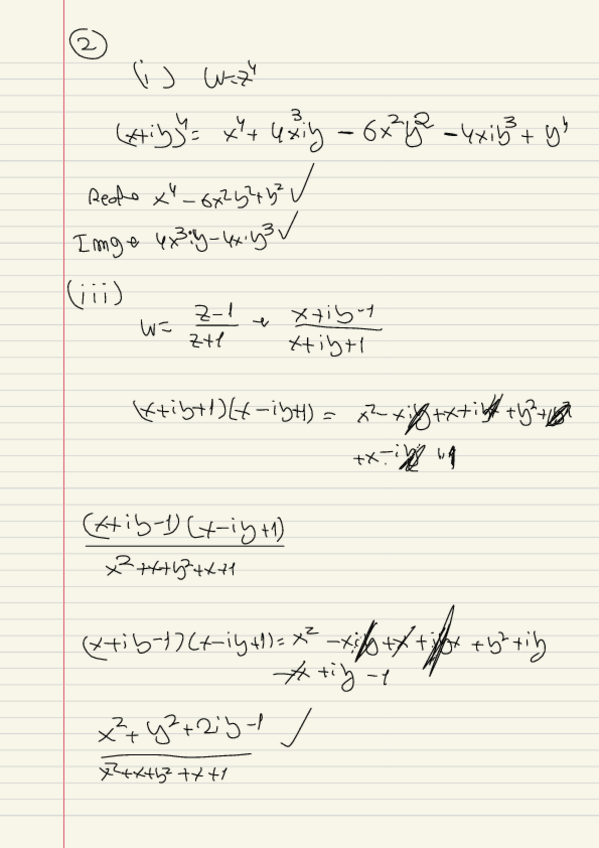 ②
(i) w=z⁴
(x+iy)⁴ = x⁴ + 4x³iy − 6x²y² − 4xiy³ + y⁴
Real → x⁴ − 6x²y² + y² ✓
Img → 4x³iy − 4xiy³ ✓
(iii)
w = \frac{z-1}{z+1} → \frac{x+iy-1}{x+iy+1}
(x+iy+1)(x−iy+1) = x² − xiy + x + iyx + y² + iy
+x − iy + 1
\frac{(x+iy-1)(x-iy+1)}{x²+x+y²+x+1}
(x+iy−1)(x−iy+1) = x² − xiy + x + iyx + y² + iy
−x + iy − 1
\frac{x²+y²+2iy-1}{x²+x+y²+x+1} ✓